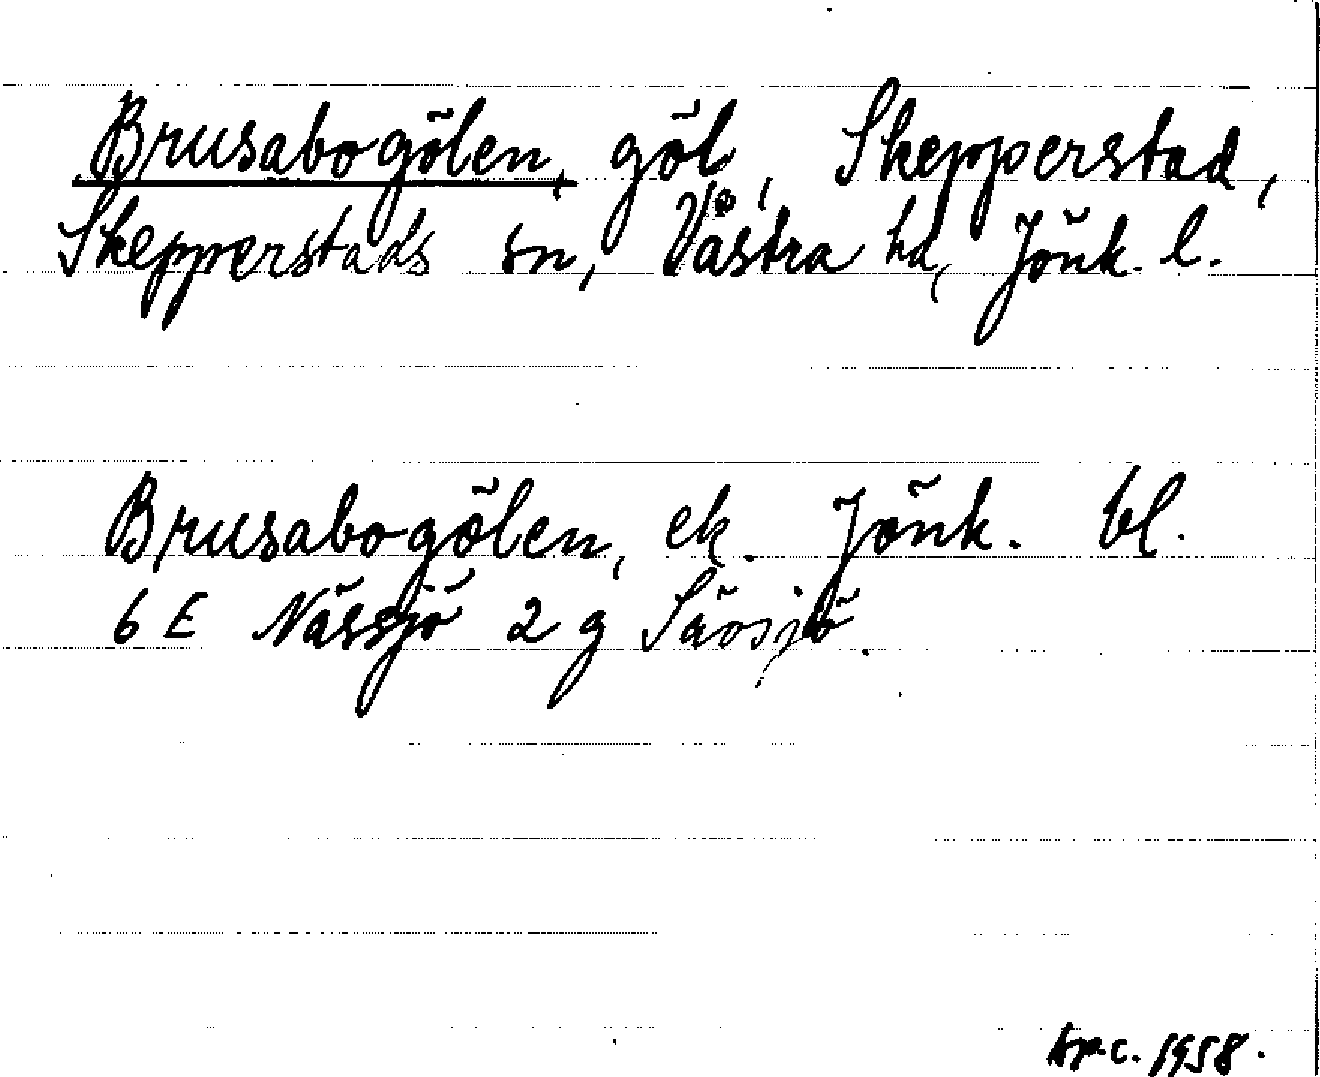 Brusabogölen, göl, Skepperstad,
Skepperstads sn, Västra hd, Jönk. l.
Brusabogölen, ek. Jönk. bl.
6 E Nässjö 2 g Sävsjö.
1958.